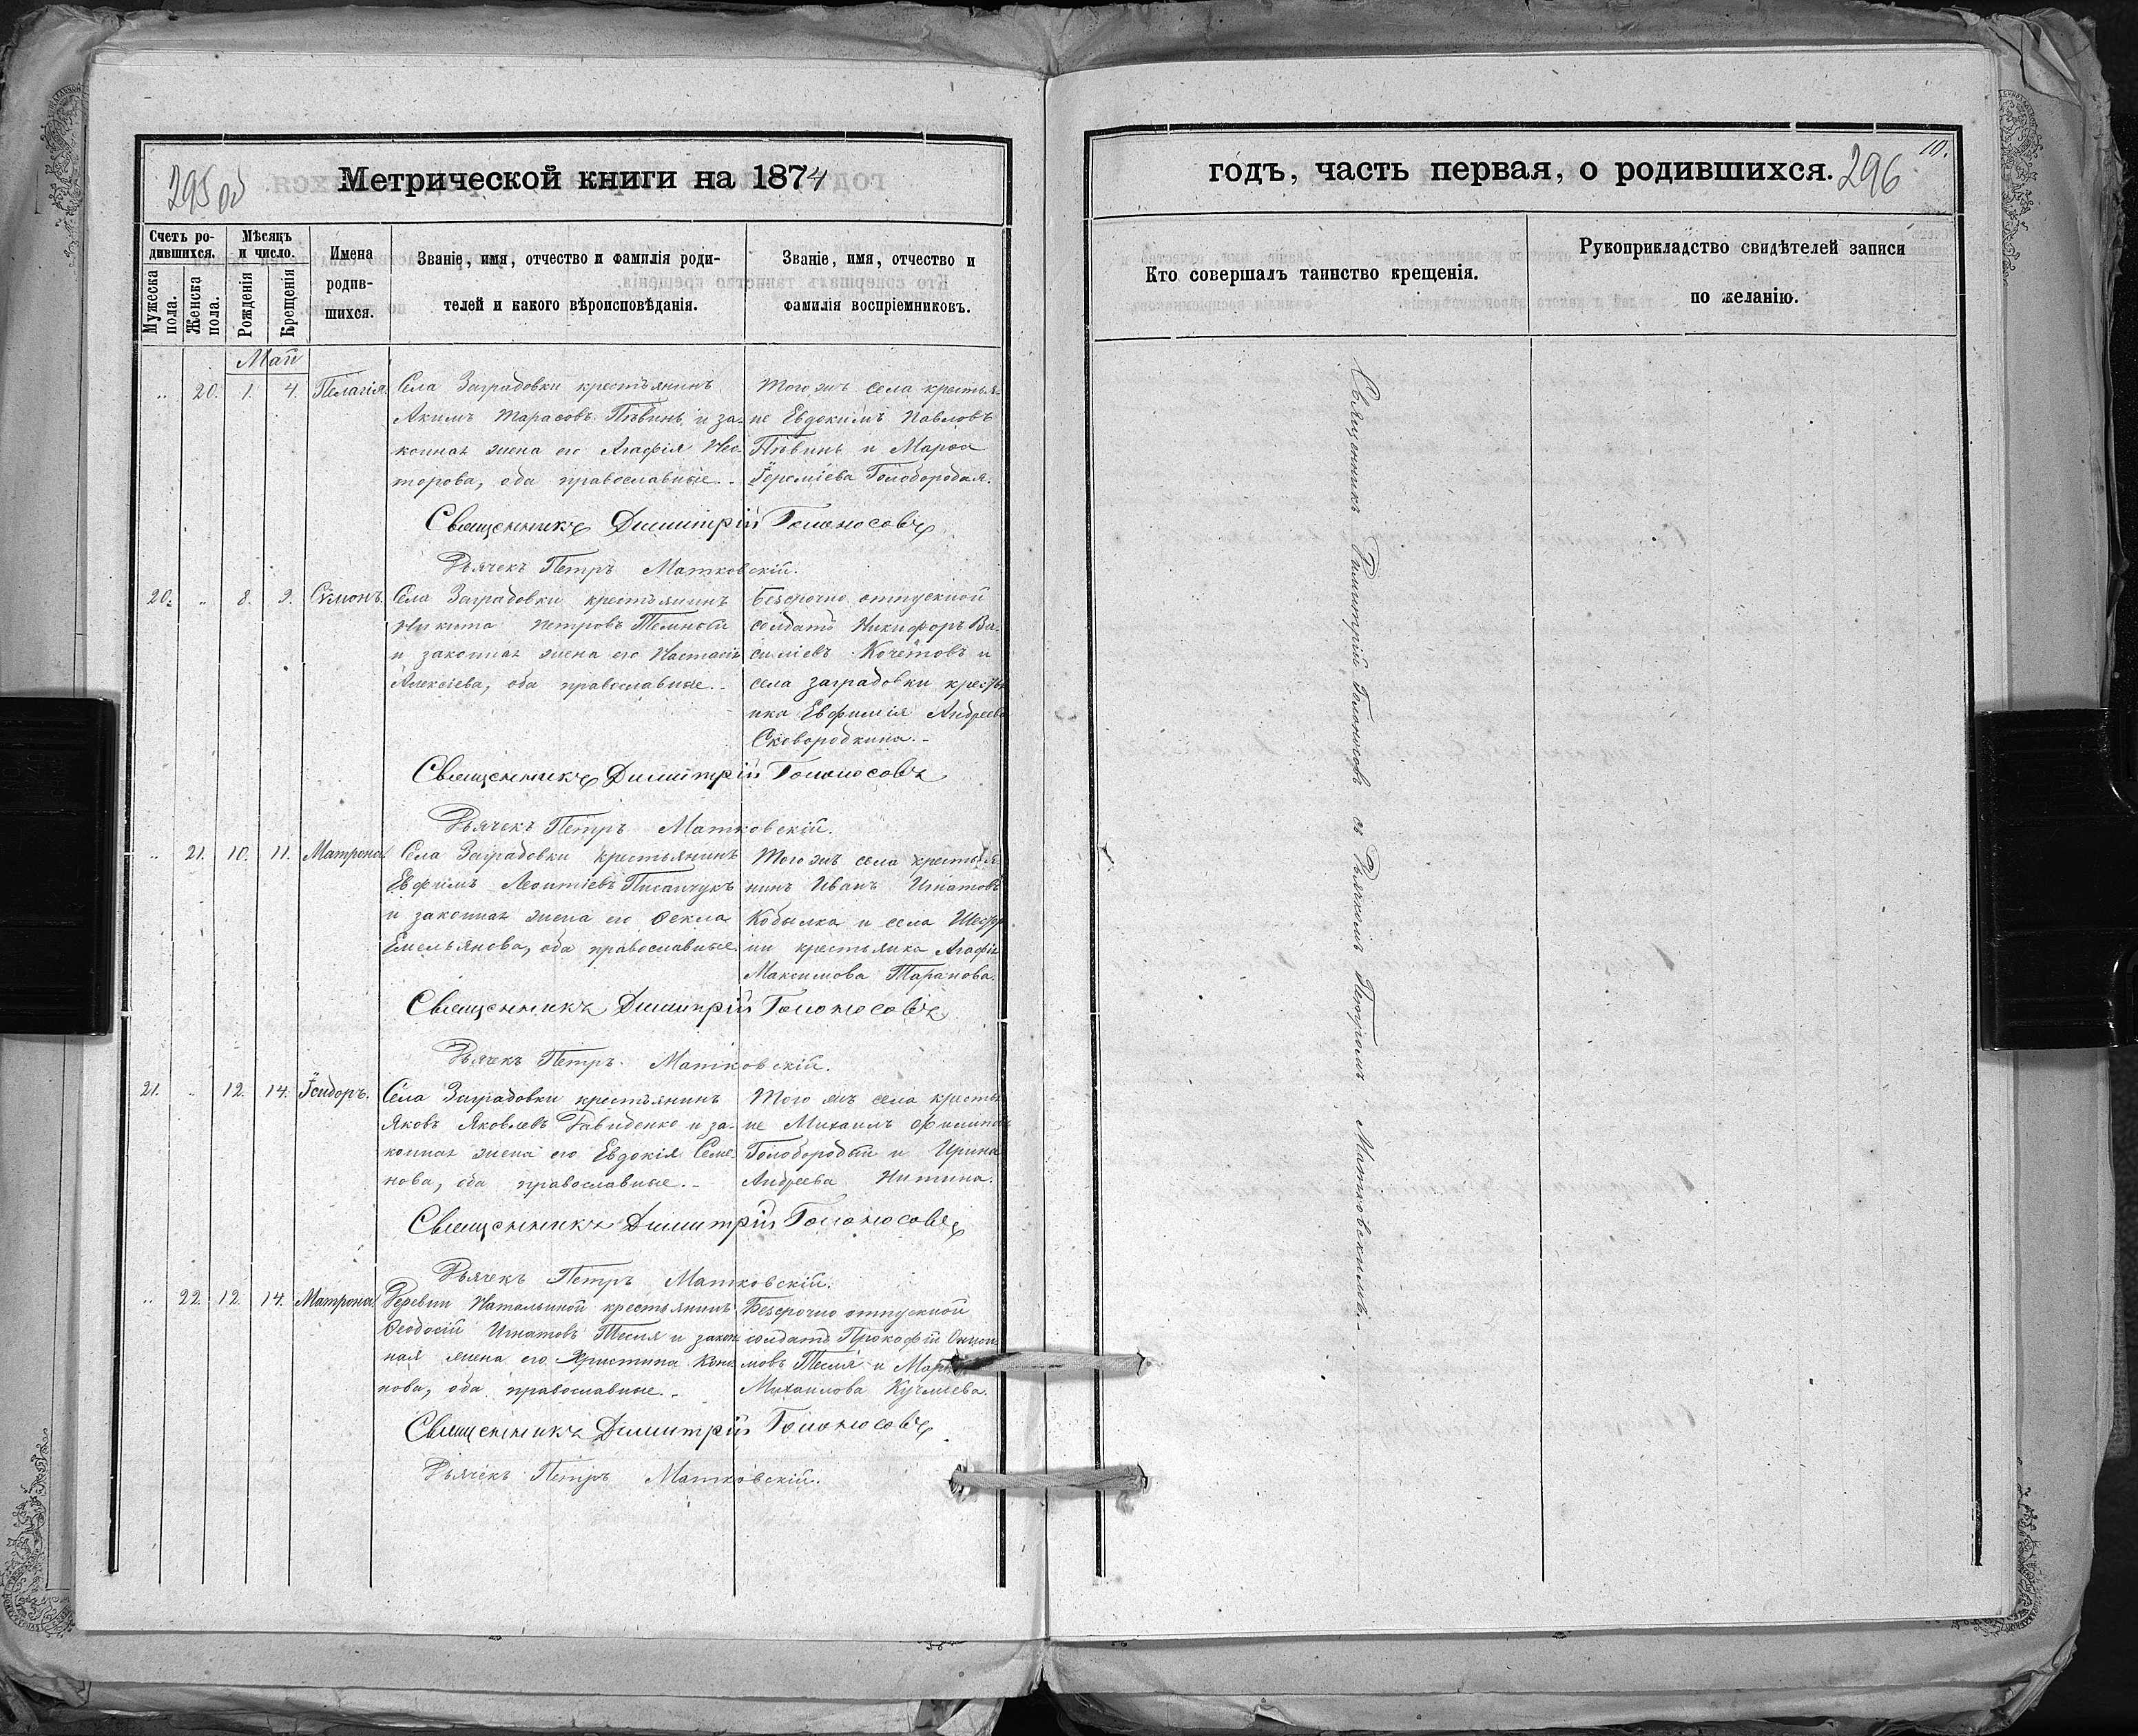 295 об
Метрической книги на 1874
Счетъ ро-
дившихся.
Мужеска
пола.
Женска
пола.
Мѣсяцъ
и число.
Рожденія
Крещенія
Имена
родив-
шихся.
Званіе, имя, отчество и фамилія роди-
телей и какого вѣроисповѣданія.
Званіе, имя, отчество и
фамилія воспріемниковъ.
Май
„ 20. 1. 4. Пелагія.
Села Заградовки крестьянинъ
Акимъ Тарасовъ Пѣвинь и за-
конная жена его Агафія Нес-
торова, оба православные.
Того жъ села крестья-
не Евдокимъ Павловъ
Пѣвинь и Марѳа
Іереміева Голобородая.
Священникъ Димитрій Голоносовъ
Дьячекъ Петръ Матковскій.
20. „ 8. 9. Сѵмонъ.
Села Заградовки крестьянинъ
Никита Петровъ Темный
и законная жена его Настасія
Алексіева, оба православные.
Безсрочно отпускной
солдатъ Никифоръ Ва-
силіевъ Кочетовъ и
села Заградовки кресть
нка Евфимія Андреева
Сковородкина.
Священникъ Димитрій Голоносовъ
Дьячекъ Петръ Матковскій.
„ 21. 10. 11. Матрона
Села Заградовки крестьянинъ
Евфимъ Леонтіевъ Писанчукъ
и законная жена его Ѳекла
Емельянова, оба православные.
Того жъ села крестья-
нинъ Иванъ Игнатовъ
Кобылка и села
ни крестьянка Агафія
Максимова Таранова.
Священникъ Димитрій Голоносовъ
Дьячекъ Петръ Матковскій.
21. „ 12. 14. Ісидоръ.
Села Заградовки крестьянинъ
Яковъ Яковлевъ Давиденко и за-
конная жена его Евдокія Семе-
нова, оба православные.
Того жъ села крестья
не Михаилъ Филиповъ
Голобородый и Ирина
Андреева
Священникъ Димитрій Голоносовъ
Дьячекъ Петръ Матковскій.
„ 22. 12. 14. Матрона.
Деревни Натальиной крестьянинъ
Ѳеодосій Игнатовъ Тесля и закон
ная жена его Христина Коно
нова, оба православные.
Безсрочно отпускной
солдатъ Прокофій
мовъ Тесля и
Михаилова
Священникъ Димитрій Голоносовъ
Дьячекъ Петръ Матковскій.
годъ, часть первая, о родившихся.
296
10.
Кто совершалъ таинство крещенія.
Рукоприкладство свидѣтелей записи
по желанію.
Священникъ Димитрій Голоносовъ съ Дьячкомъ Петромъ Матковскимъ.